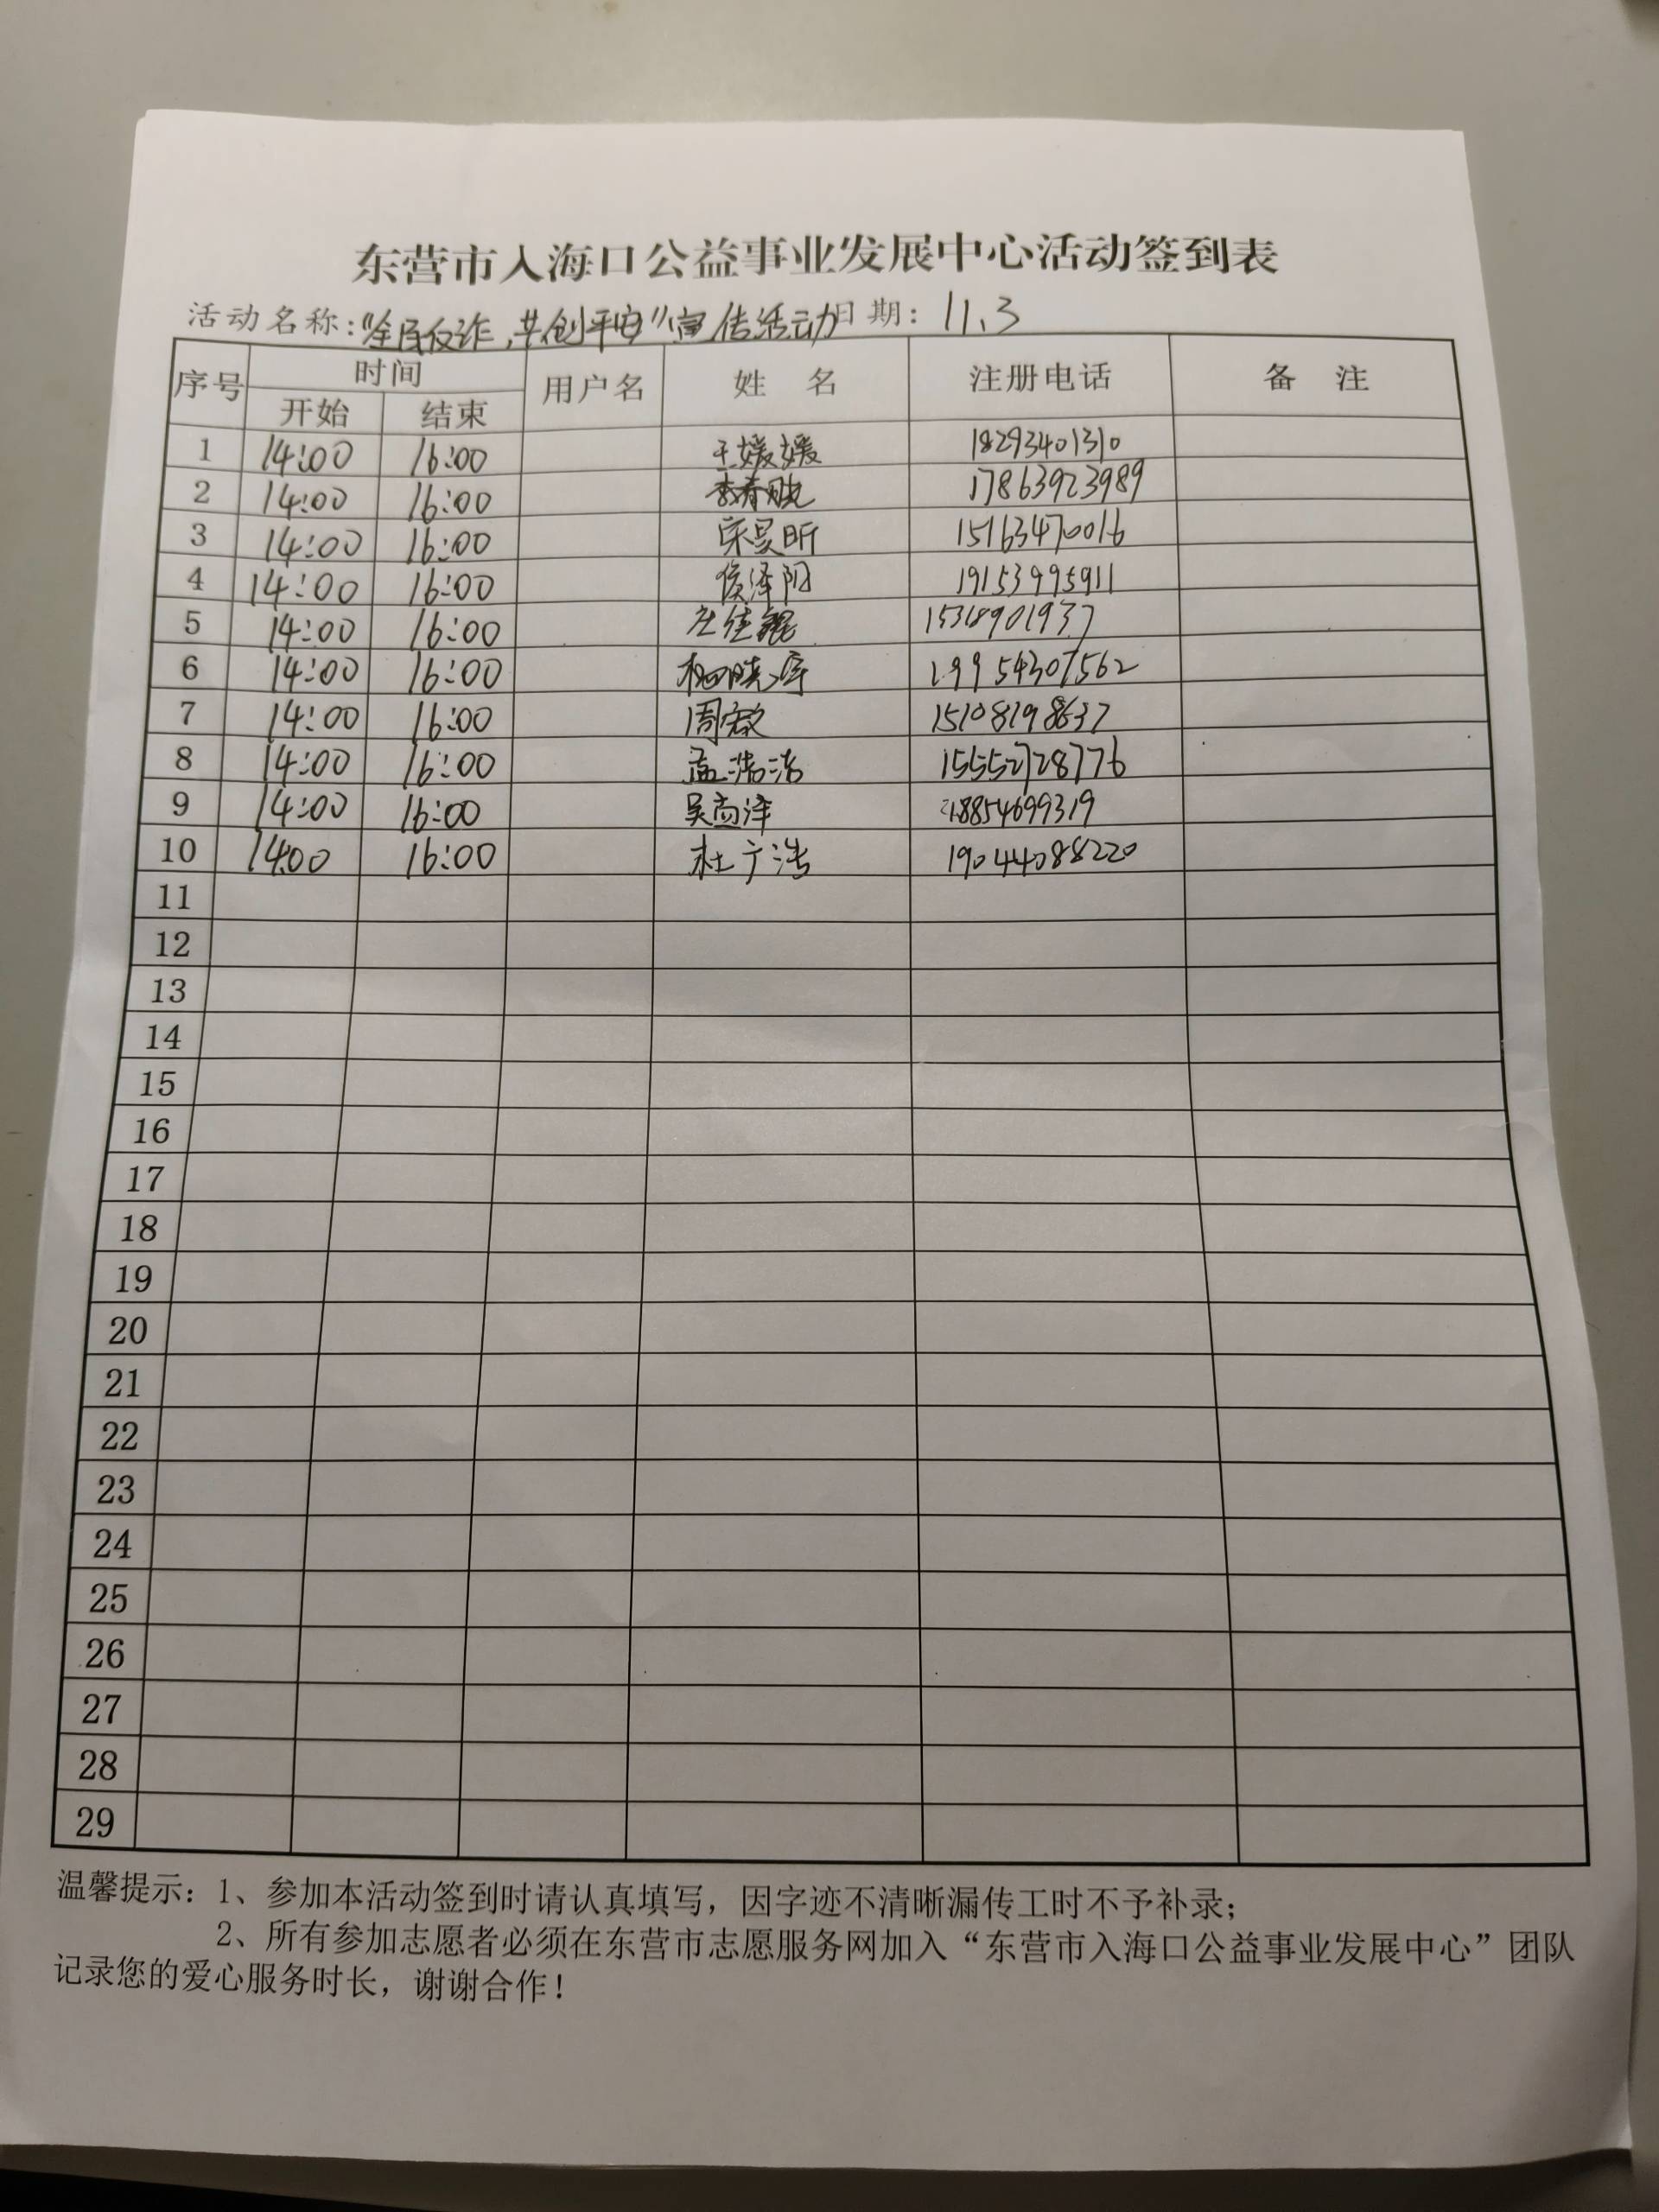 东营市入海口公益事业发展中心活动签到表
活动名称:“全民反诈,共创平安”宣传活动 日期: 11.3
序号 时间 用户名 姓 名 注册电话 备 注
开始 结束
1 14:00 16:00 王媛媛 18293401310
2 14:00 16:00 李春晓 17863923989
3 14:00 16:00 宋昊昕 15163470016
4 14:00 16:00 侯泽阳 19153995911
5 14:00 16:00 15318901937
6 14:00 16:00 19954307562
7 14:00 16:00 周宏 15108198637
8 14:00 16:00 孟浩浩 15552728776
9 14:00 16:00 吴尚泽 18854699319
10 14:00 16:00 杜广浩 19044088220
11
12
13
14
15
16
17
18
19
20
21
22
23
24
25
26
27
28
29
温馨提示:1、参加本活动签到时请认真填写,因字迹不清晰漏传工时不予补录;
2、所有参加志愿者必须在东营市志愿服务网加入“东营市入海口公益事业发展中心”团队
记录您的爱心服务时长,谢谢合作!